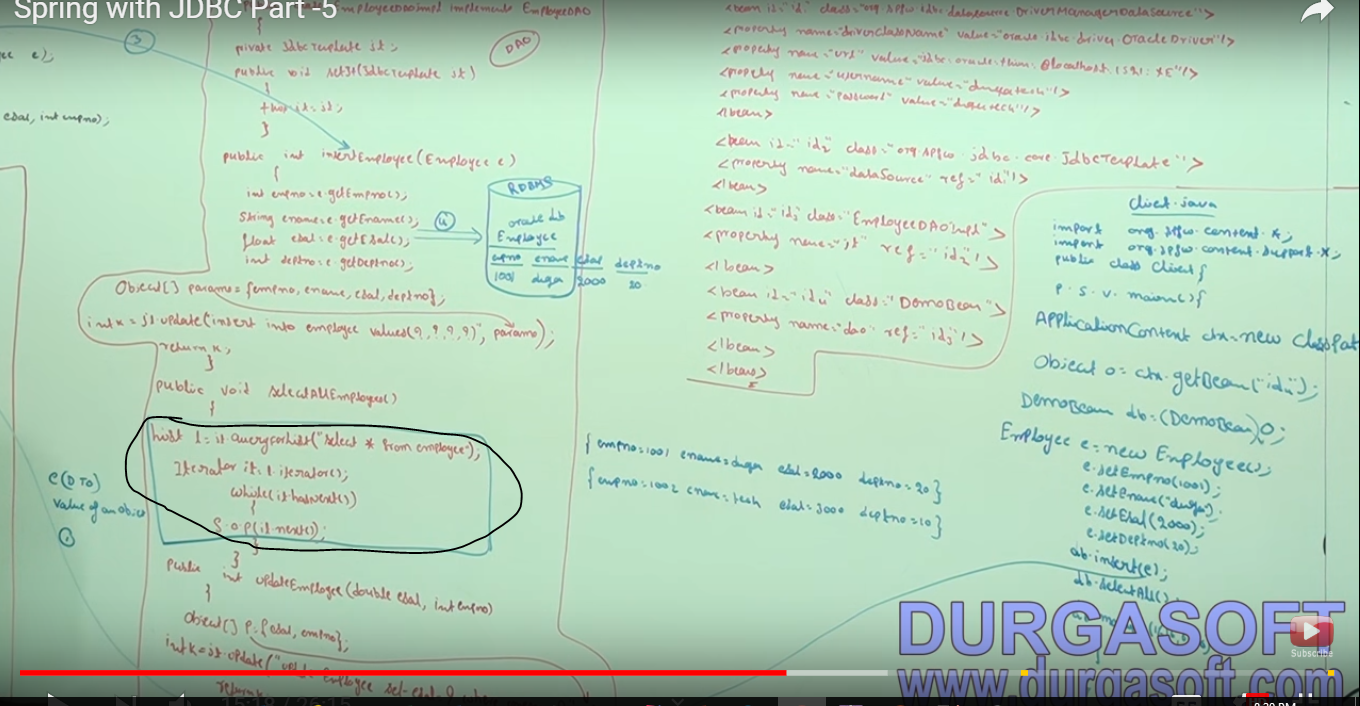 Spring with JDBC Part -5
EmployeeDAOimpl implements EmployeeDAO
{
private JdbcTemplate jt;
public void setJt(JdbcTemplate jt)
{
this.jt=jt;
}
DAO
3
ee e);
esal, int empno);
public int insertEmployee(Employee e)
{
int empno=e.getEmpno();
String ename=e.getEname();
float esal=e.getEsal();
int deptno=e.getDeptno();
4
RDBMS
oracle db
Employee
empno ename esal deptno
1001 durga 2000 20
Object[] params={empno, ename, esal, deptno};
int k=jt.update("insert into employee values(?,?,?,?)", params);
return k;
}
public void selectAllEmployees()
{
List l=jt.queryForList("select * from employee");
Iterator it=l.iterator();
while(it.hasNext())
{
S.o.p(it.next());
}
}
e(DTO)
value of an object
1
public int updateEmployee(double esal, int empno)
}
Object[] p={esal, empno};
int k=jt.update("update employee set esal=?
return k
<bean id="id1" class="org.spfw.jdbc.datasource.DriverManagerDataSource">
<property name="driverClassName" value="oracle.jdbc.driver.OracleDriver"/>
<property name="url" value="jdbc:oracle:thin:@localhost:1521:XE"/>
<property name="username" value="durgatech"/>
<property name="password" value="durgatech"/>
</bean>
<bean id="id2" class="org.spfw.jdbc.core.JdbcTemplate">
<property name="dataSource" ref="id1"/>
</bean>
<bean id="id3" class="EmployeeDAOimpl">
<property name="jt" ref="id2"/>
</bean>
<bean id="id4" class="DemoBean">
<property name="dao" ref="id3"/>
</bean>
</beans>
{empno=1001 ename=durga esal=2000 deptno=20}
{empno=1002 ename=tesh esal=3000 deptno=10}
client.java
import org.spfw.context.*;
import org.spfw.context.support.*;
public class Client{
p.s.v.main(){
ApplicationContext ctx=new ClassPat
Object o=ctx.getBean("id4");
DemoBean db=(DemoBean)o;
Employee e=new Employee();
e.setEmpno(1001);
e.setEname("durga");
e.setEsal(2000);
e.setDeptno(20);
db.insert(e);
db.selectAll();
DURGASOFT
www.durgasoft.com
Subscribe